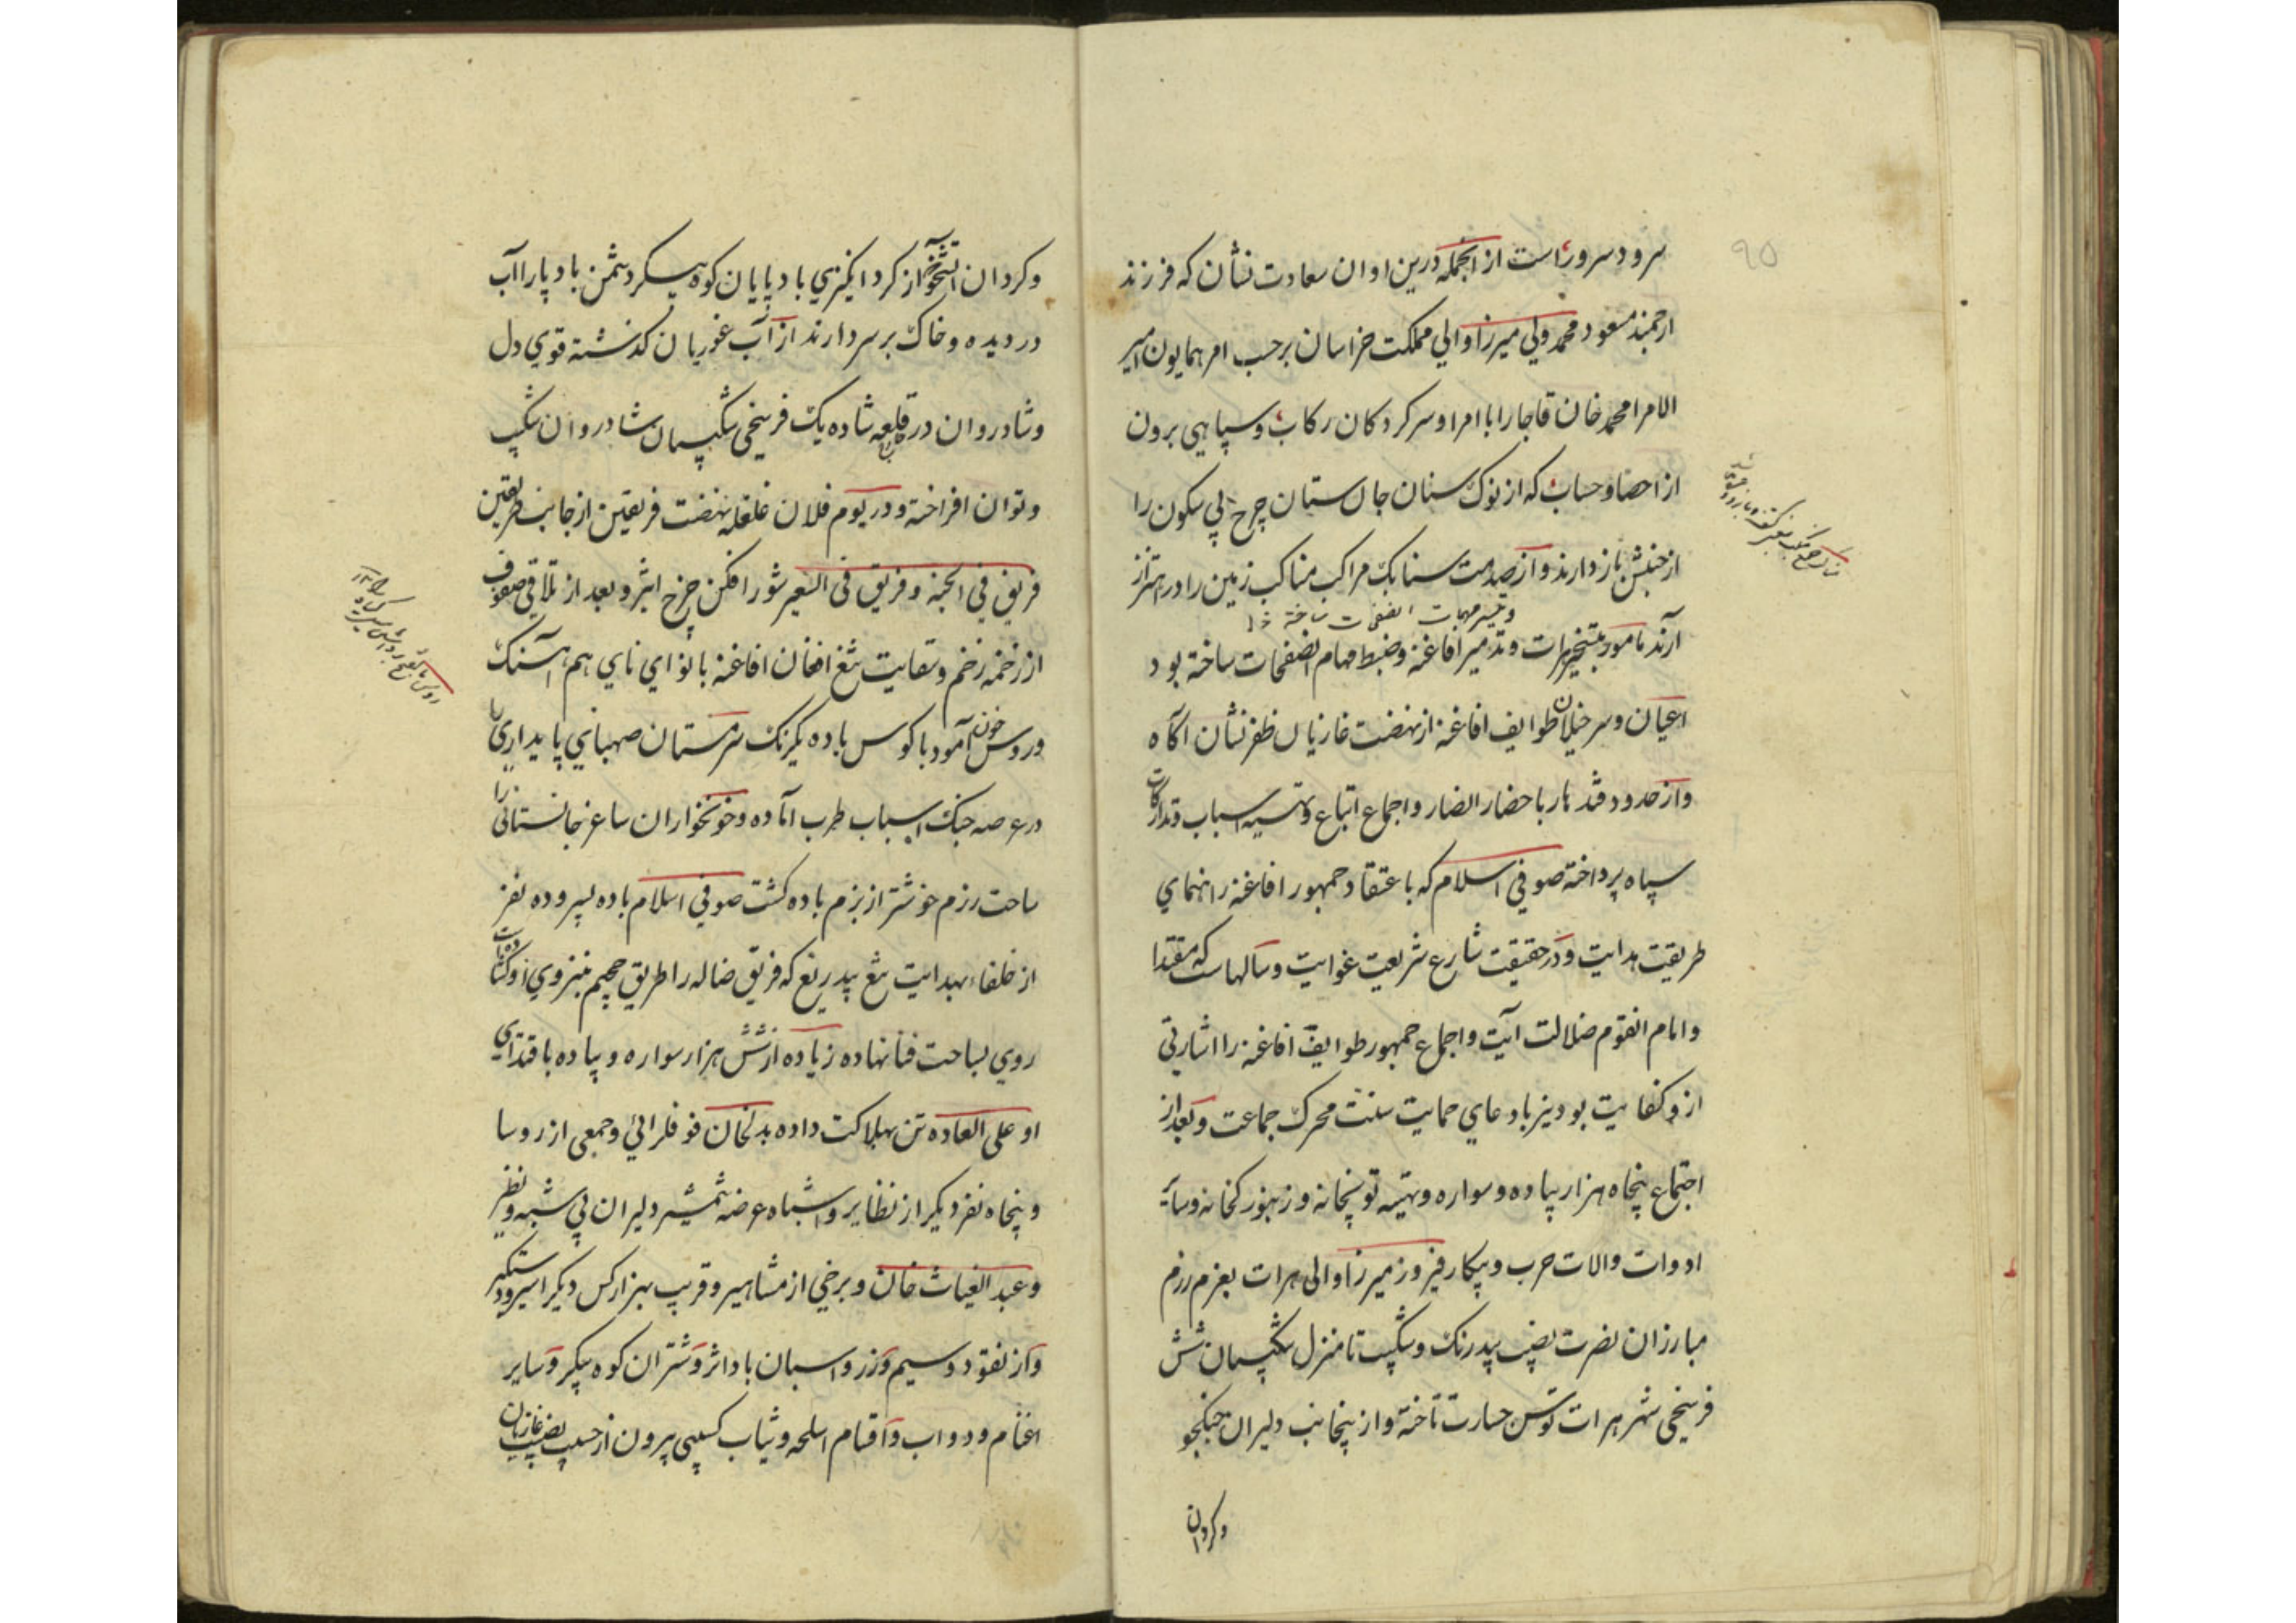 ۹۵
سرود سروراست از انجمله درین اوان سعادت نشان که فرزند
ارجمند مسعود محمد ولی میرزا والی مملکت خراسان برحسب امر همایون امیر
الامرا محمد خان قاجار را با امرا و سرکردکان رکاب و سپاهی برون
از احصا و حساب که از نوک سنان جان ستان چرخ بی سکون را
از جنبش باز دارند و از صدمت سنابک مراکب مناکب زمین را در اهتزاز
آرند مامور بتسخیر هرات و تدمیر افاغنه و ضبط مهام انصفحات ساخته بود
اعیان و سرخیلان طوایف افاغنه از نهضت غازیان ظفر نشان اکاه
و از حدود قندهار باحضار انصار و اجماع اتباع و تهیه اسباب و تدارکات
سپاه پرداخته صوفی اسلام که باعتقاد جمهور افاغنه رانهمای
طریقت هدایت و در حقیقت شارع شریعت غوایت و سالهاست که مقتدا
و امام انقوم ضلالت آیت و اجماع جمهور طوایف افاغنه را اشارتی
از و کفایت بود نیز بادعای حمایت سنت محرک جماعت و بعد از
اجتماع پنجاه هزار پیاده و سواره و تهیه توپخانه و زنبورکخانه و سایر
ادوات والات حرب و پیکار فیروز میرزا والی هرات بعزم رزم
مبارزان نصرت نصیب بیدرنک و شکیب تا منزل شکیبان شش
فرسخی شهر هرات توسن جسارت تاخته و از ینجانب دلیران جنکجو
وکردان
وکردان اتشخو از کرد انکیزی باد پایان کوه پیکر دشمن باد پا را آب
در دیده و خاک بر سر دارند از آب غوریان کذشته قوی دل
و شادروان در قلعه شاده یک فرسخی شکیبان شادروان شکیب
و توان افراخته و در یوم فلان غلغله نهضت فریقین از جانب طریقین
فریق فی الجنه و فریق فی السعیر شور افکن چرخ اثیر و بعد از تلاقی صفوف
از زخمه زخم و سقایت تیغ افغان افاغنه با نوای نای هم آهنک
و روس خون آمود با کوس باده یکرنک سرمستان صهبای پایداری را
در عرصه جنک اسباب طرب آماده و خونخواران ساغر جانستانی را
ساحت رزم خوشتر از بزم باده کشت صوفی اسلام باده پسر و ده نفر
از خلفاء بهدایت تیغ بیدریغ که فریق ضاله را طریق جحیم
روی بساحت فنا نهاده زیاده از شش هزار سواره و پیاده باقتدای
او علی العاده تن بهلاکت داده بدلخان فوفلزائی و جمعی از روسا
و پنجاه نفر دیکر از نظایر و اشباه عرضه شمشیر دلیران بی شبه و نظیر
و عبد الغیاث خان و برخی از مشاهیر و قریب بهزار کس دیکر اسیر و دستکیر
و از نقود و سیم و زر و اسبان باد اثر و شتران کوه پیکر و سایر
اغنام و دواب و اقسام اسلحه و ثیاب کسیبی برون از حسیب نصیب غازیان